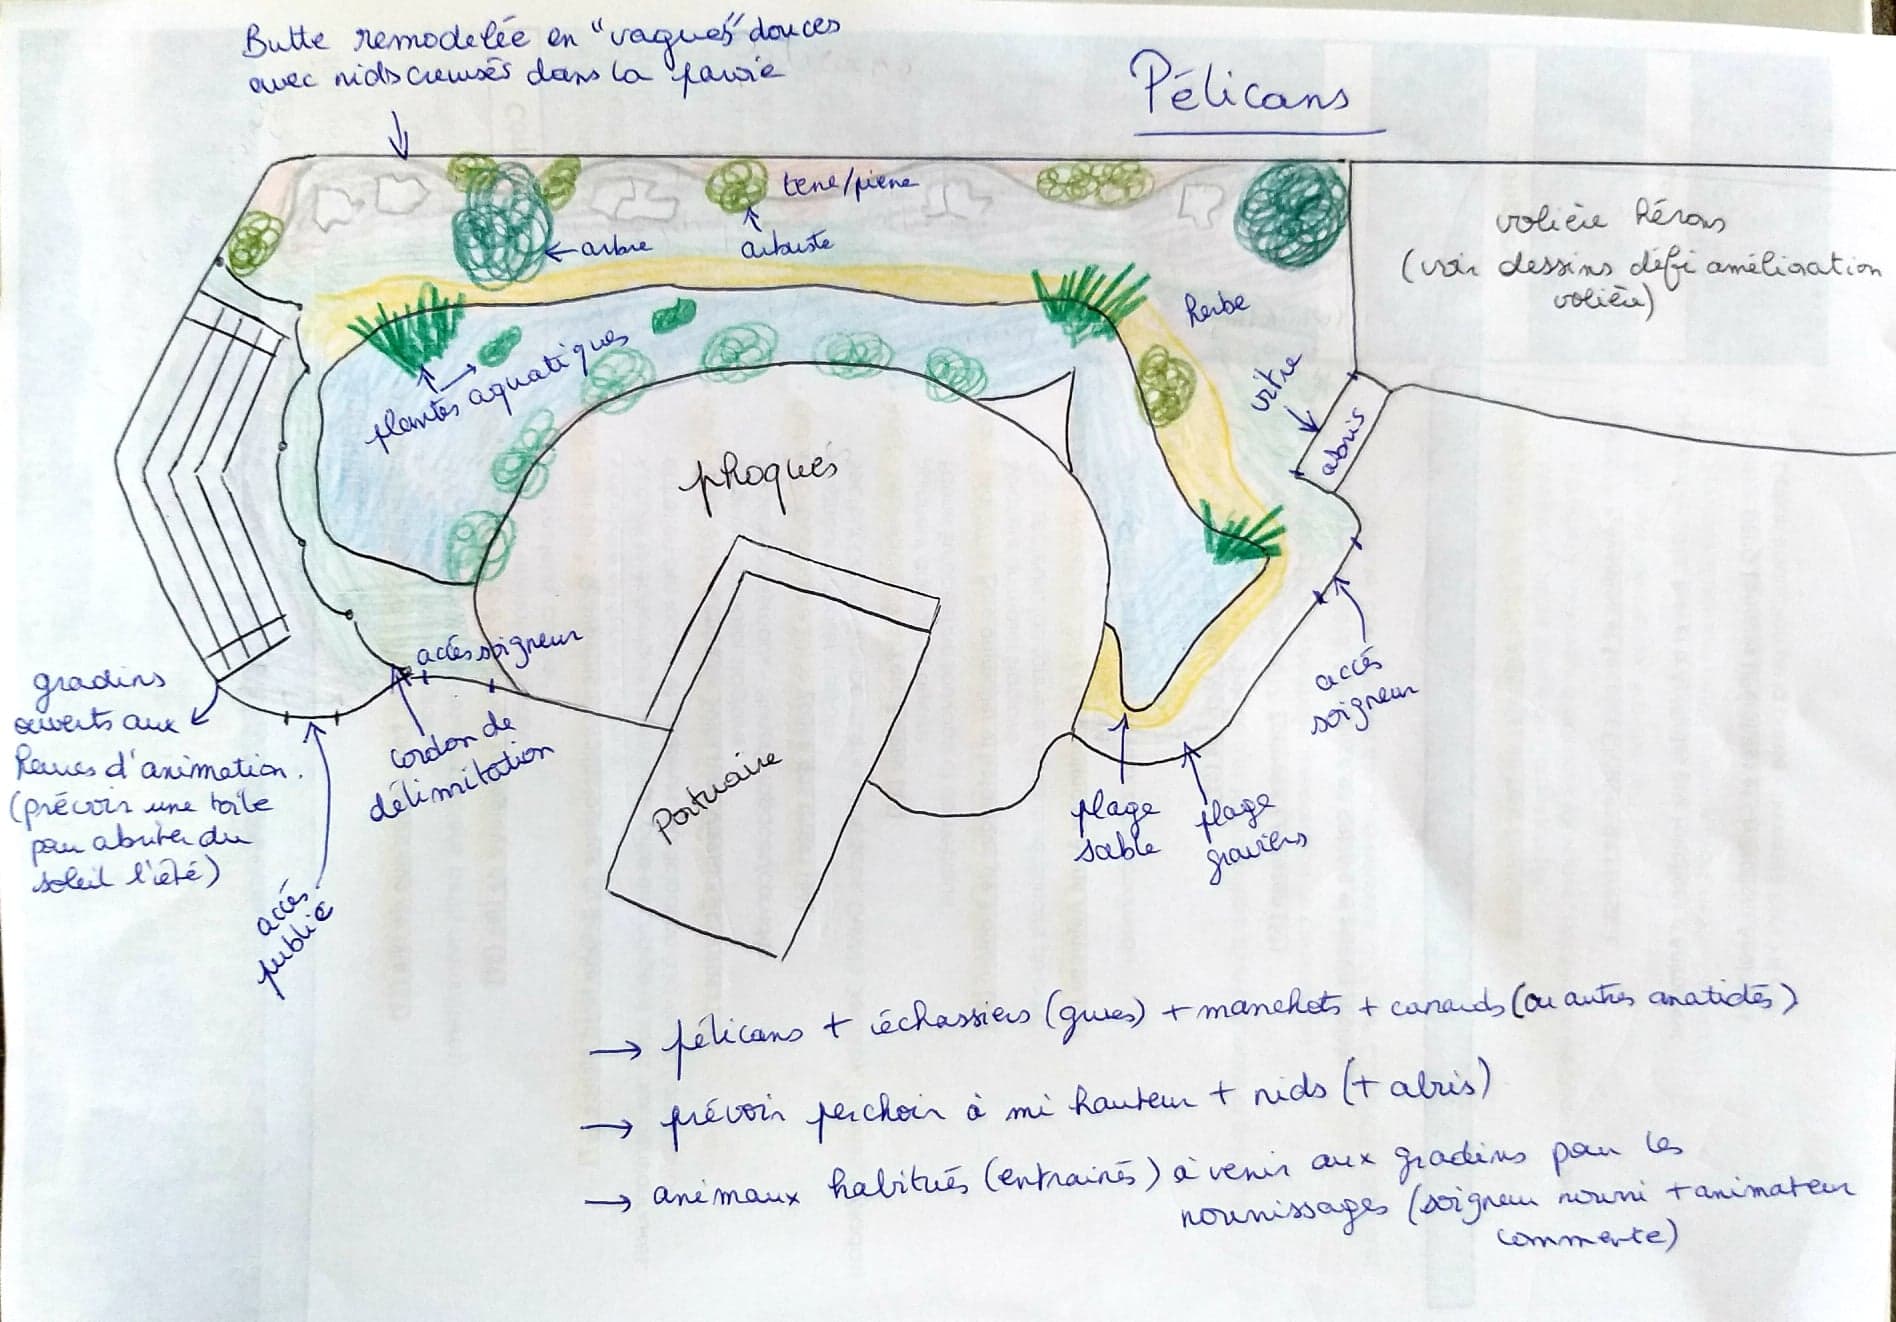 Butte remodelée en "vagues" douces
avec nids creusés dans la paroie
Pélicans
terre/pierre
arbre
arbuste
volière hérons
(voir dessins défi amélioration
volière)
herbe
vitre
abris
plantes aquatiques
phoques
accès soigneur
gradins
ouverts aux
heures d'animation.
(prévoir une toile
pour abriter du
soleil l'été)
cordon de
délimitation
accès
public
Portuaire
accès
soigneur
plage
sable
plage
graviers
→ pélicans + échassiers (grues) + manchots + canards (ou autres anatidés)
→ prévoir perchoir à mi hauteur + nids (+ abris)
→ animaux habitués (entrainés) à venir aux gradins pour les
nourrissages (soigneur nourri + animateur
commente)